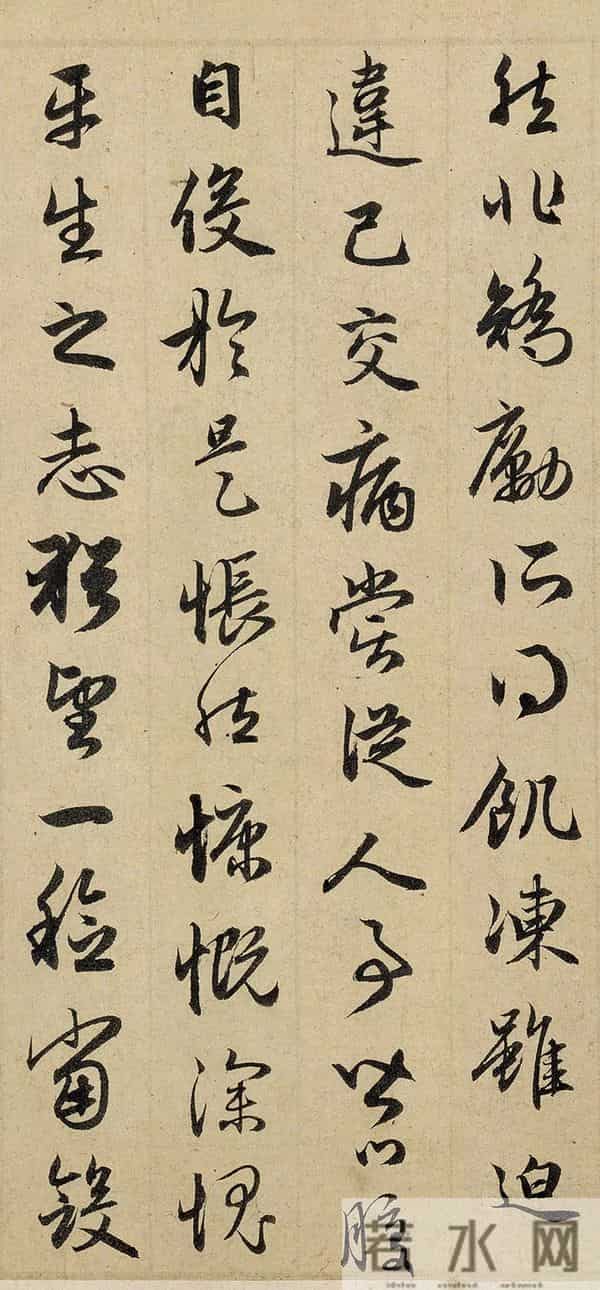 然非矯勵所得飢凍雖迫
違己交病嘗從人事皆口腹
自役於是悵然慷慨深愧
平生之志猶望一稔當斂
若水网